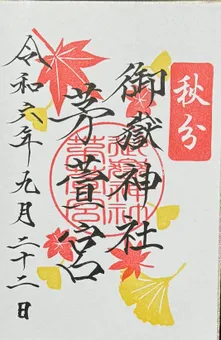 秋分
御嶽神社
茅萱宮
令和六年九月二十二日